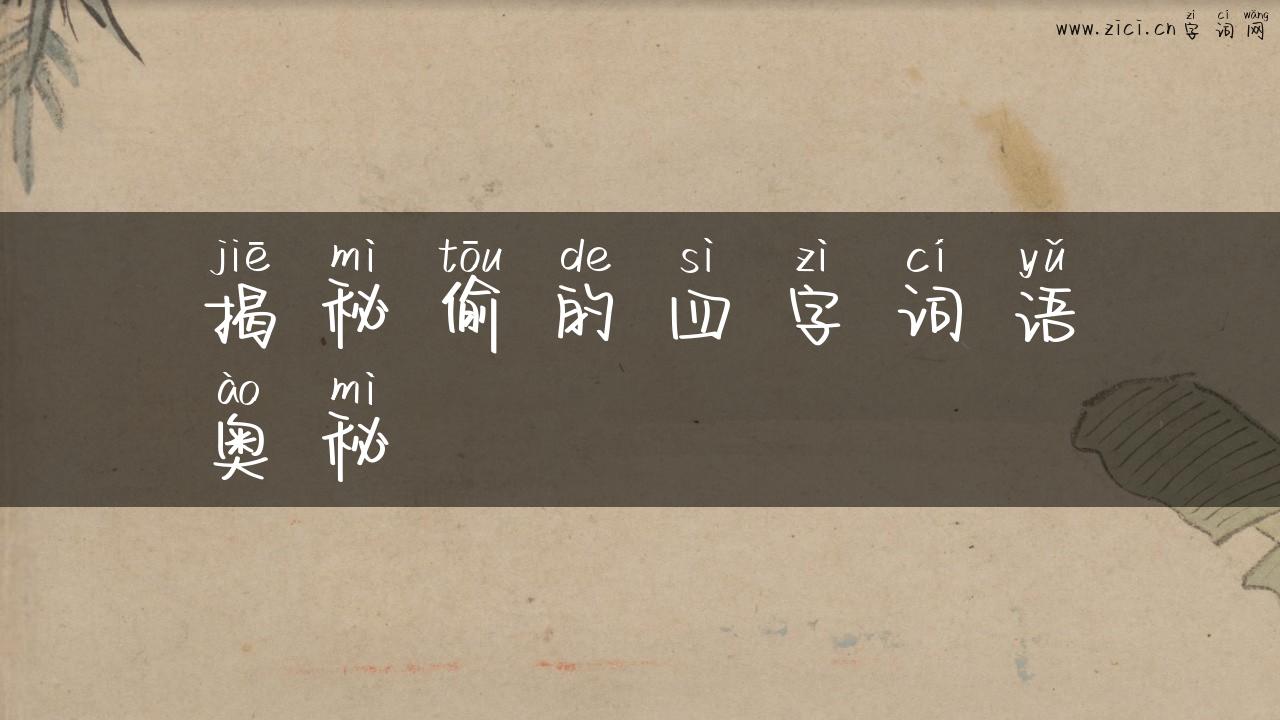 zì cí wǎng
www.zici.cn 字词网
jiē mì tōu de sì zì cí yǔ
揭秘偷的四字词语
ào mì
奥秘